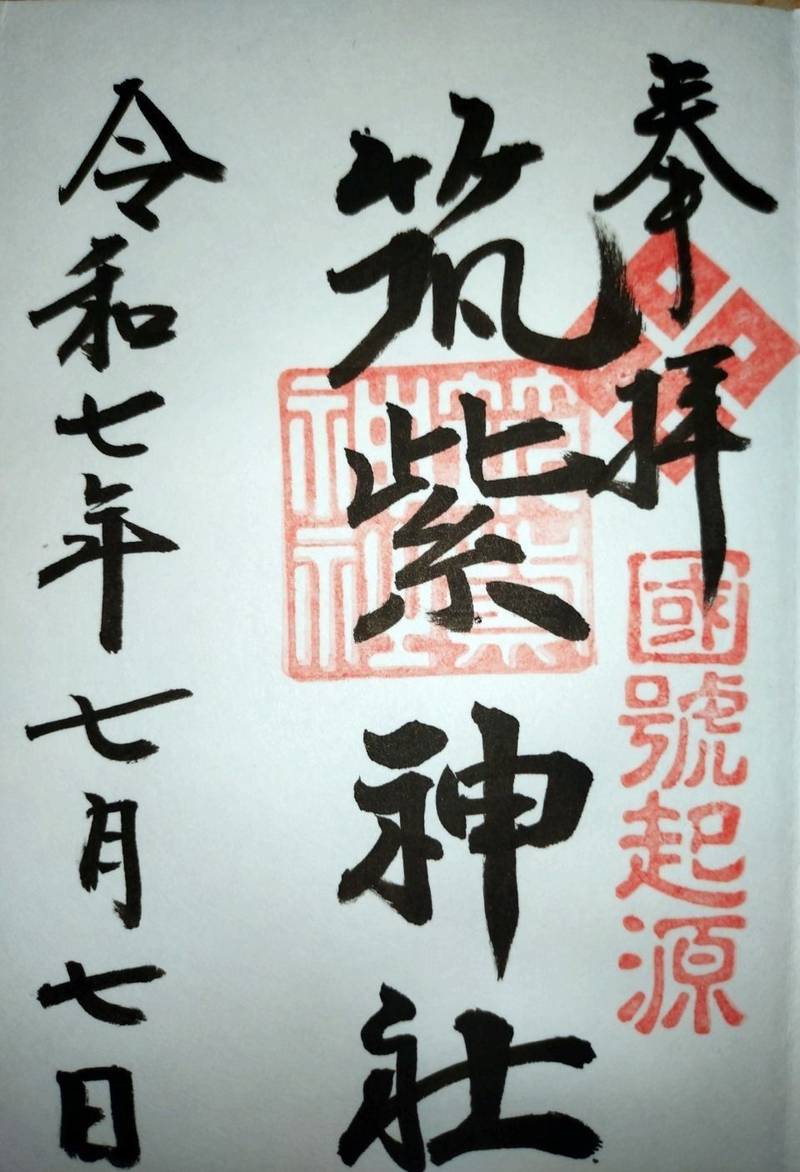 奉拝
國號起源
筑紫神社
筑紫
神社
令和七年七月七日